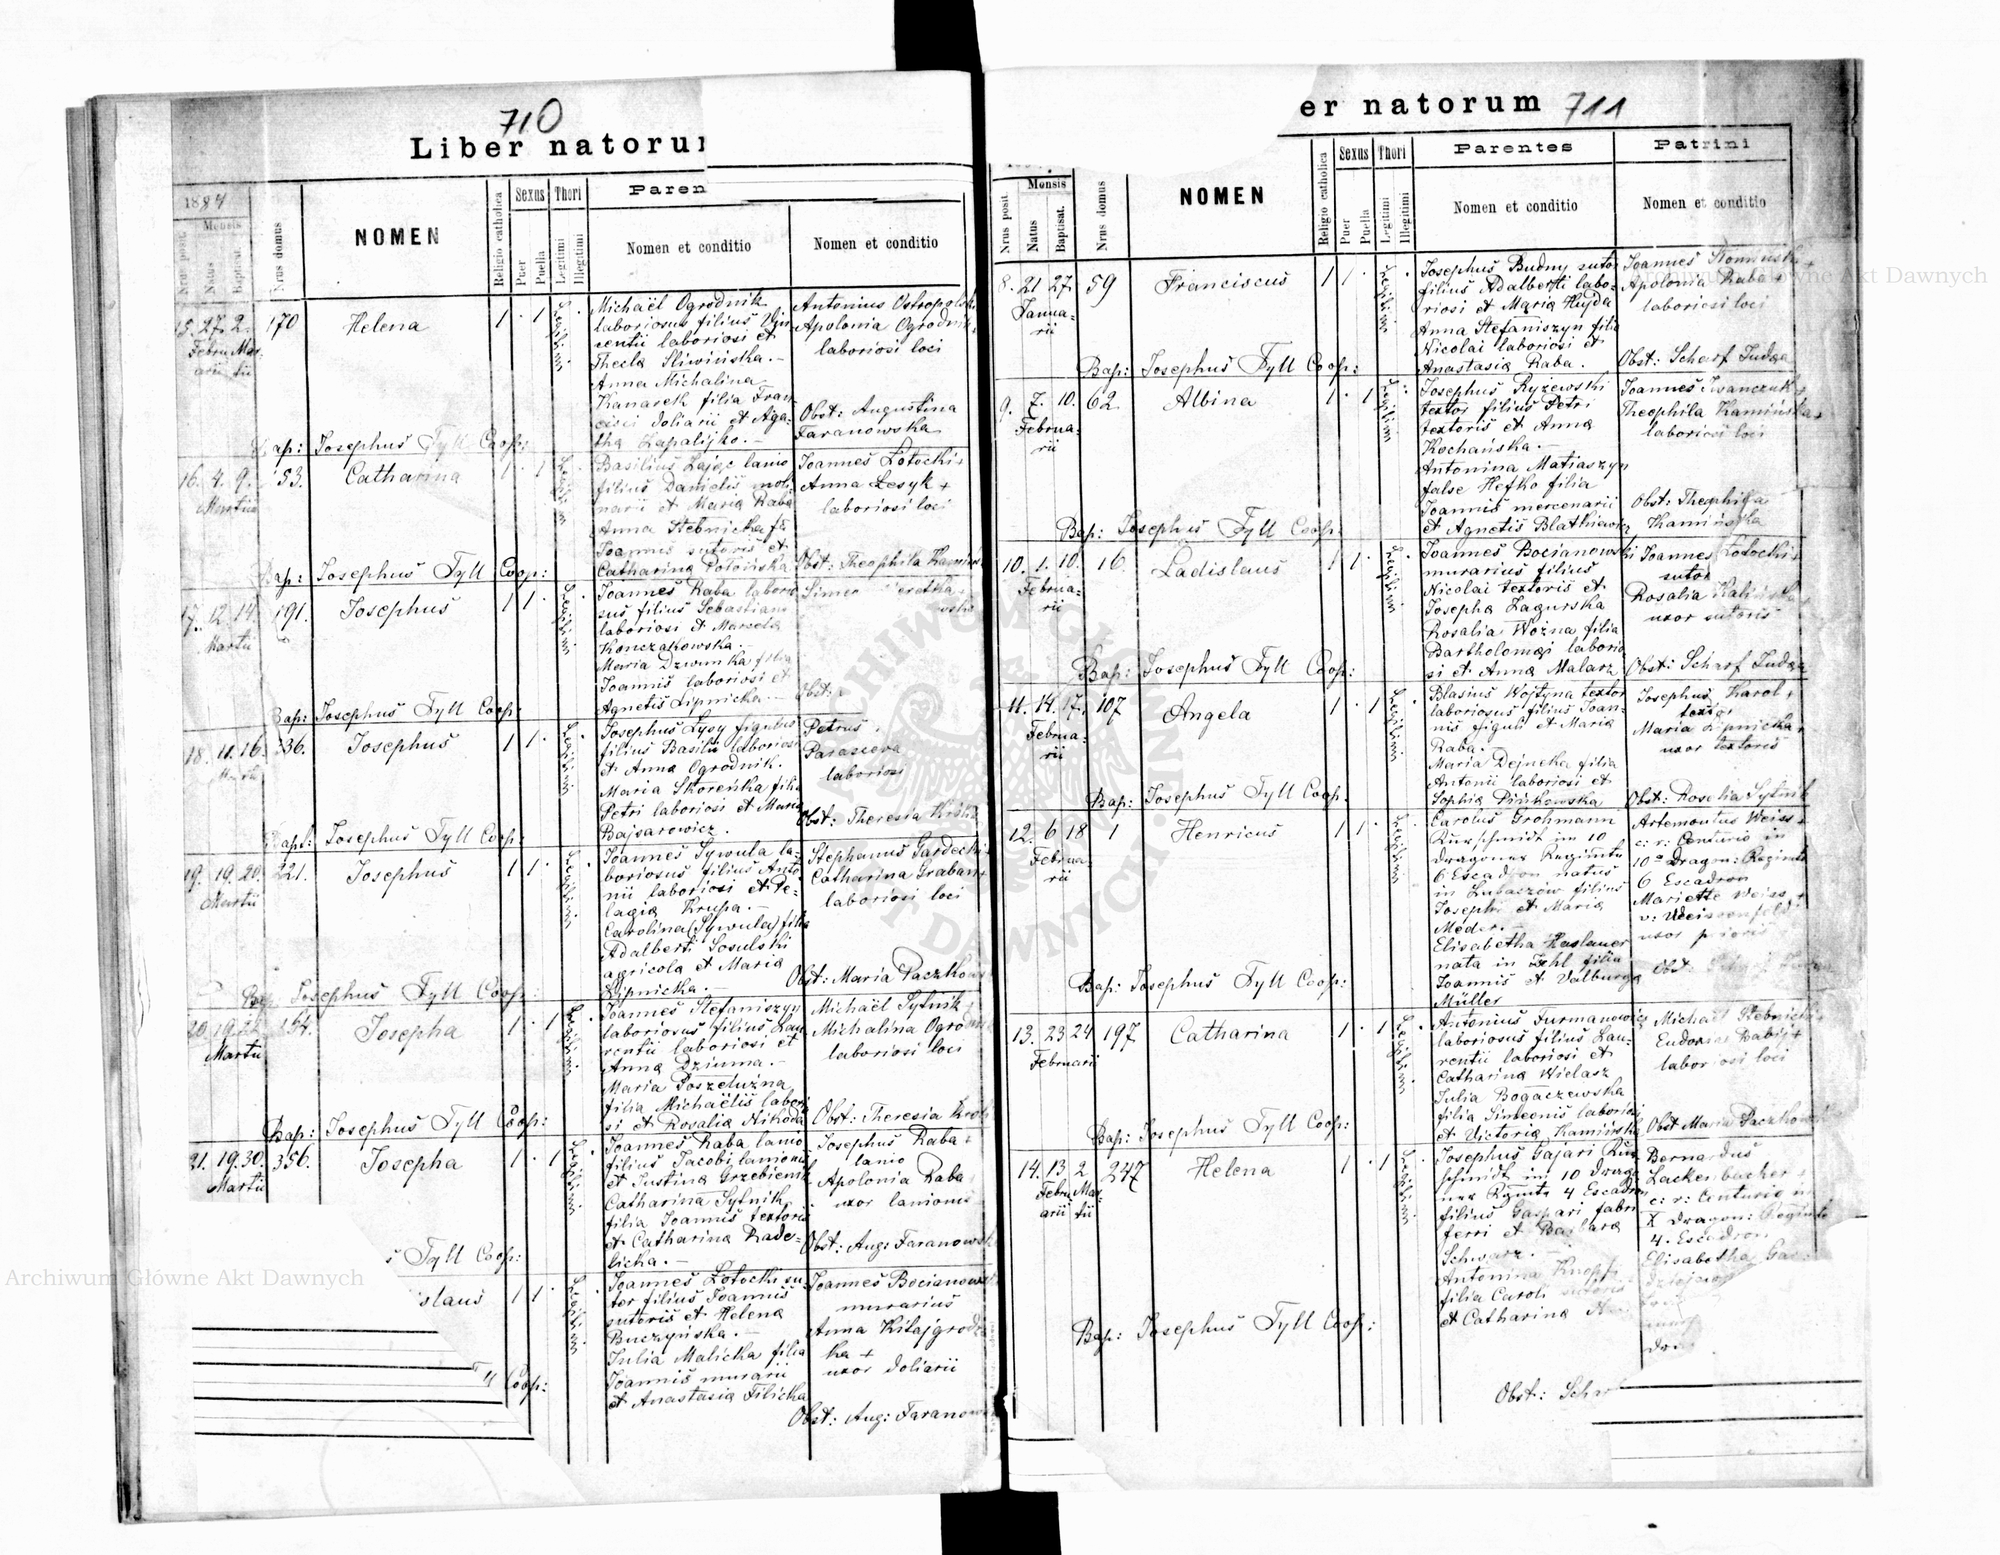 710
Liber natorum
1884
Nrus posit.
Mensis
Natus
Baptisat.
Nrus domus
NOMEN
Religio catholica
Sexus
Puer
Puella
Thori
Legitimi
Illegitimi
Paren
Nomen et conditio
Nomen et conditio
15. 27. 2. 170 Helena 1 . 1 Legitimi .
Februarii Martii
Michaël Ogrodnik
laboriosus filius Vin
centii laboriosi et
Thecla Sliwińska. –
Anna Michalina
Kanarek filia Fran
cisci doliarii et Aga
tha Zapalijko. –
Antonius Ostropolsk
Apolonia Ogrodnik
laboriosi loci
Obst: Augustina
Faranowska
Bap: Josephus Tyll Coop:
16. 4. 9. 53. Catharina 1 . 1 Legitimi .
Martii
Basilius Zając lanio
filius Danielis moli
narii et Maria Raba
Anna Stebnicka fa
Joannis sutoris et
Catharina Połońska
Joannes Łotocki +
Anna Lesyk +
laboriosi loci
Obst: Theophila Kamińs
Bap: Josephus Tyll Coop:
17. 12. 14. 191. Josephus 1 1 . Legitimi .
Martii
Joannes Raba laborio
sus filius Sebastiani
laboriosi et Marcela
Konczakowska.
Maria Dzwinka filia
Joannis laboriosi et
Agnetis Lipnicka. –
Obst:
Bap: Josephus Tyll Coop:
18. 11. 16. 236. Josephus 1 1 . Legitimi .
Josephus Łysy figulus
filius Basilii laboriosi
et Anna Ogrodnik.
Maria Skoreńka filia
Petri laboriosi et Maria
Bajsarowicz.
Petrus
Parasceva
laboriosi
Obst: Theresia Król
Bapt: Josephus Tyll Coop:
19. 19. 20. 221. Josephus 1 1 . Legitimi .
Martii
Joannes Sywula la-
boriosus filius Anto-
nii laboriosi et Pe-
lagia Krupa. –
Carolina (Sywula) filia
Adalberti Sosulski
agricola et Maria
Lipnicka. –
Stephanus Gardecki +
Catharina Graban +
laboriosi loci
Obst: Maria Paczkows
Bap: Josephus Tyll Coop:
20. 19. 154. Josepha 1 . 1 Legitimi .
Martii
Joannes Stefaniszyn
laboriosus filius Lau-
rentii laboriosi et
Anna Dziuma. –
Maria Poszeluźna
filia Michaëlis laborio
si et Rosalia Nikoda
Michaël Sytnik +
Michalina Ogrodnik
laboriosi loci
Obst: Theresia Król
Bap: Josephus Tyll Coop:
21. 19. 30. 356. Josepha 1 . 1 Legitimi .
Martii
Joannes Raba lanio
filius Jacobi lanionis
et Justina Grzebieniak
Catharina Sytnik
filia Joannis textoris
et Catharina Rade-
licka. –
Josephus Raba +
lanio
Apolonia Raba
uxor lanionis
Obst: Aug: Faranowsk
s Tyll Coop:
islaus 1 1 . Legitimi .
Joannes Łotocki su
tor filius Joannis
sutoris et Helena
Buczyńska. –
Julia Malicka filia
Joannis murarii
et Anastasia Filicka
Joannes Bocianows
murarius
Anna Kitajgrodz
ka +
uxor doliarii
Obst: Aug: Faranow
Coop:
711
er natorum
Nrus posit.
Mensis
Natus
Baptisat.
Nrus domus
NOMEN
Religio catholica
Sexus
Puer
Puella
Thori
Legitimi
Illegitimi
Parentes
Nomen et conditio
Patrini
Nomen et conditio
8. 21 27. 59 Franciscus 1 1 . Legitimi .
Januarii
Josephus Budny sutor
filius Adalberti labo-
riosi et Maria Hujda
Anna Stefaniszyn filia
Nicolai laboriosi et
Anastasia Raba.
Apolonia Raba +
laboriosi loci
Obst: Scharf Judaa
Bap: Josephus Tyll Coop:
9. 7. 10. 62. Albina 1 . 1 Legitimi
Februarii
Josephus Ryżewski
textor filius Petri
textoris et Anna
Kochańska. –
Antonina Matiaszyn
false Hefko filia
Joannis mercenarii
et Agnetis Blatkiewicz
Joannes Iwanczuk +
Theophila Kamińska +
laboriosi loci
Obst: Theophila
Kamińska
Bap: Josephus Tyll Coop:
10. 1. 10. 16. Ladislaus 1 1 . Legitimi .
Februarii
Joannes Bocianowski
murarius filius
Nicolai textoris et
Josepha Zagurska
Rosalia Woźna filia
Bartholomæi laborio
si et Anna Malarz
Joannes Łotocki +
sutor
Rosalia Kalińska
uxor sutoris
Obst: Scharf Judaa
Bap: Josephus Tyll Coop:
11. 14. 17. 107 Angela 1 . 1 Legitimi .
Februarii
Blasius Wojtyna textor
laboriosus filius Joan-
nis figuli et Maria
Raba.
Maria Dejneka filia
Antonii laboriosi et
Sophia Pińkowska
Josephus Karol +
textor
Maria Lipnicka +
uxor textoris
Obst: Rosalia Sytnik
Bap: Josephus Tyll Coop:
12. 6 18 1 Henricus 1 1 . Legitimi .
Februarii
Carolus Grohmann
Kurschmidt im 10
dragoner Regimte
6 Escadron natus
in Lubaszów filius
Josephi et Maria
Meder. –
Elisabetha Haslauer
nata in Ischl filia
Joannis et Valburga
Müller
Artemontus Weiss +
c: r: Centurio in
10º Dragon: Regimte
6 Escadron
Mariette Weiss +
v: Weissenfeldt
uxor prioris
Bap: Josephus Tyll Coop:
13. 23 24 197 Catharina 1 . 1 Legitimi .
Februarii
Antonius Furmanowicz
laboriosus filius Lau-
rentii laboriosi et
Catharina Wielasz
Julia Bogaczewska
filia Simeonis laboriosi
et Victoria Kamińska
Michaël Stebnicki +
Eudoxia Babij +
laboriosi loci
Obst Maria Paczkows
Bap: Josephus Tyll Coop:
14. 13 2 247 Helena 1 . 1 Legitimi .
Februarii Martii
Josephus Gajari Kur
schmidt im 10 drago
ner Regmte 4 Escadron
filius Gaspari fabri
ferri et Barbara
Schwarz. –
Antonina Knopf
filia Caroli sutoris
et Catharina
Bernardus
Lackenbacher +
c: r: Centurio in
X dragon: Regimte
4. Escadron
Elisabetha
Bap: Josephus Tyll Coop:
Obst: Schar
Archiwum Główne Akt Dawnych
Archiwum Główne Akt Dawnych
ARCHIWUM GŁÓWNE AKT DAWNYCH